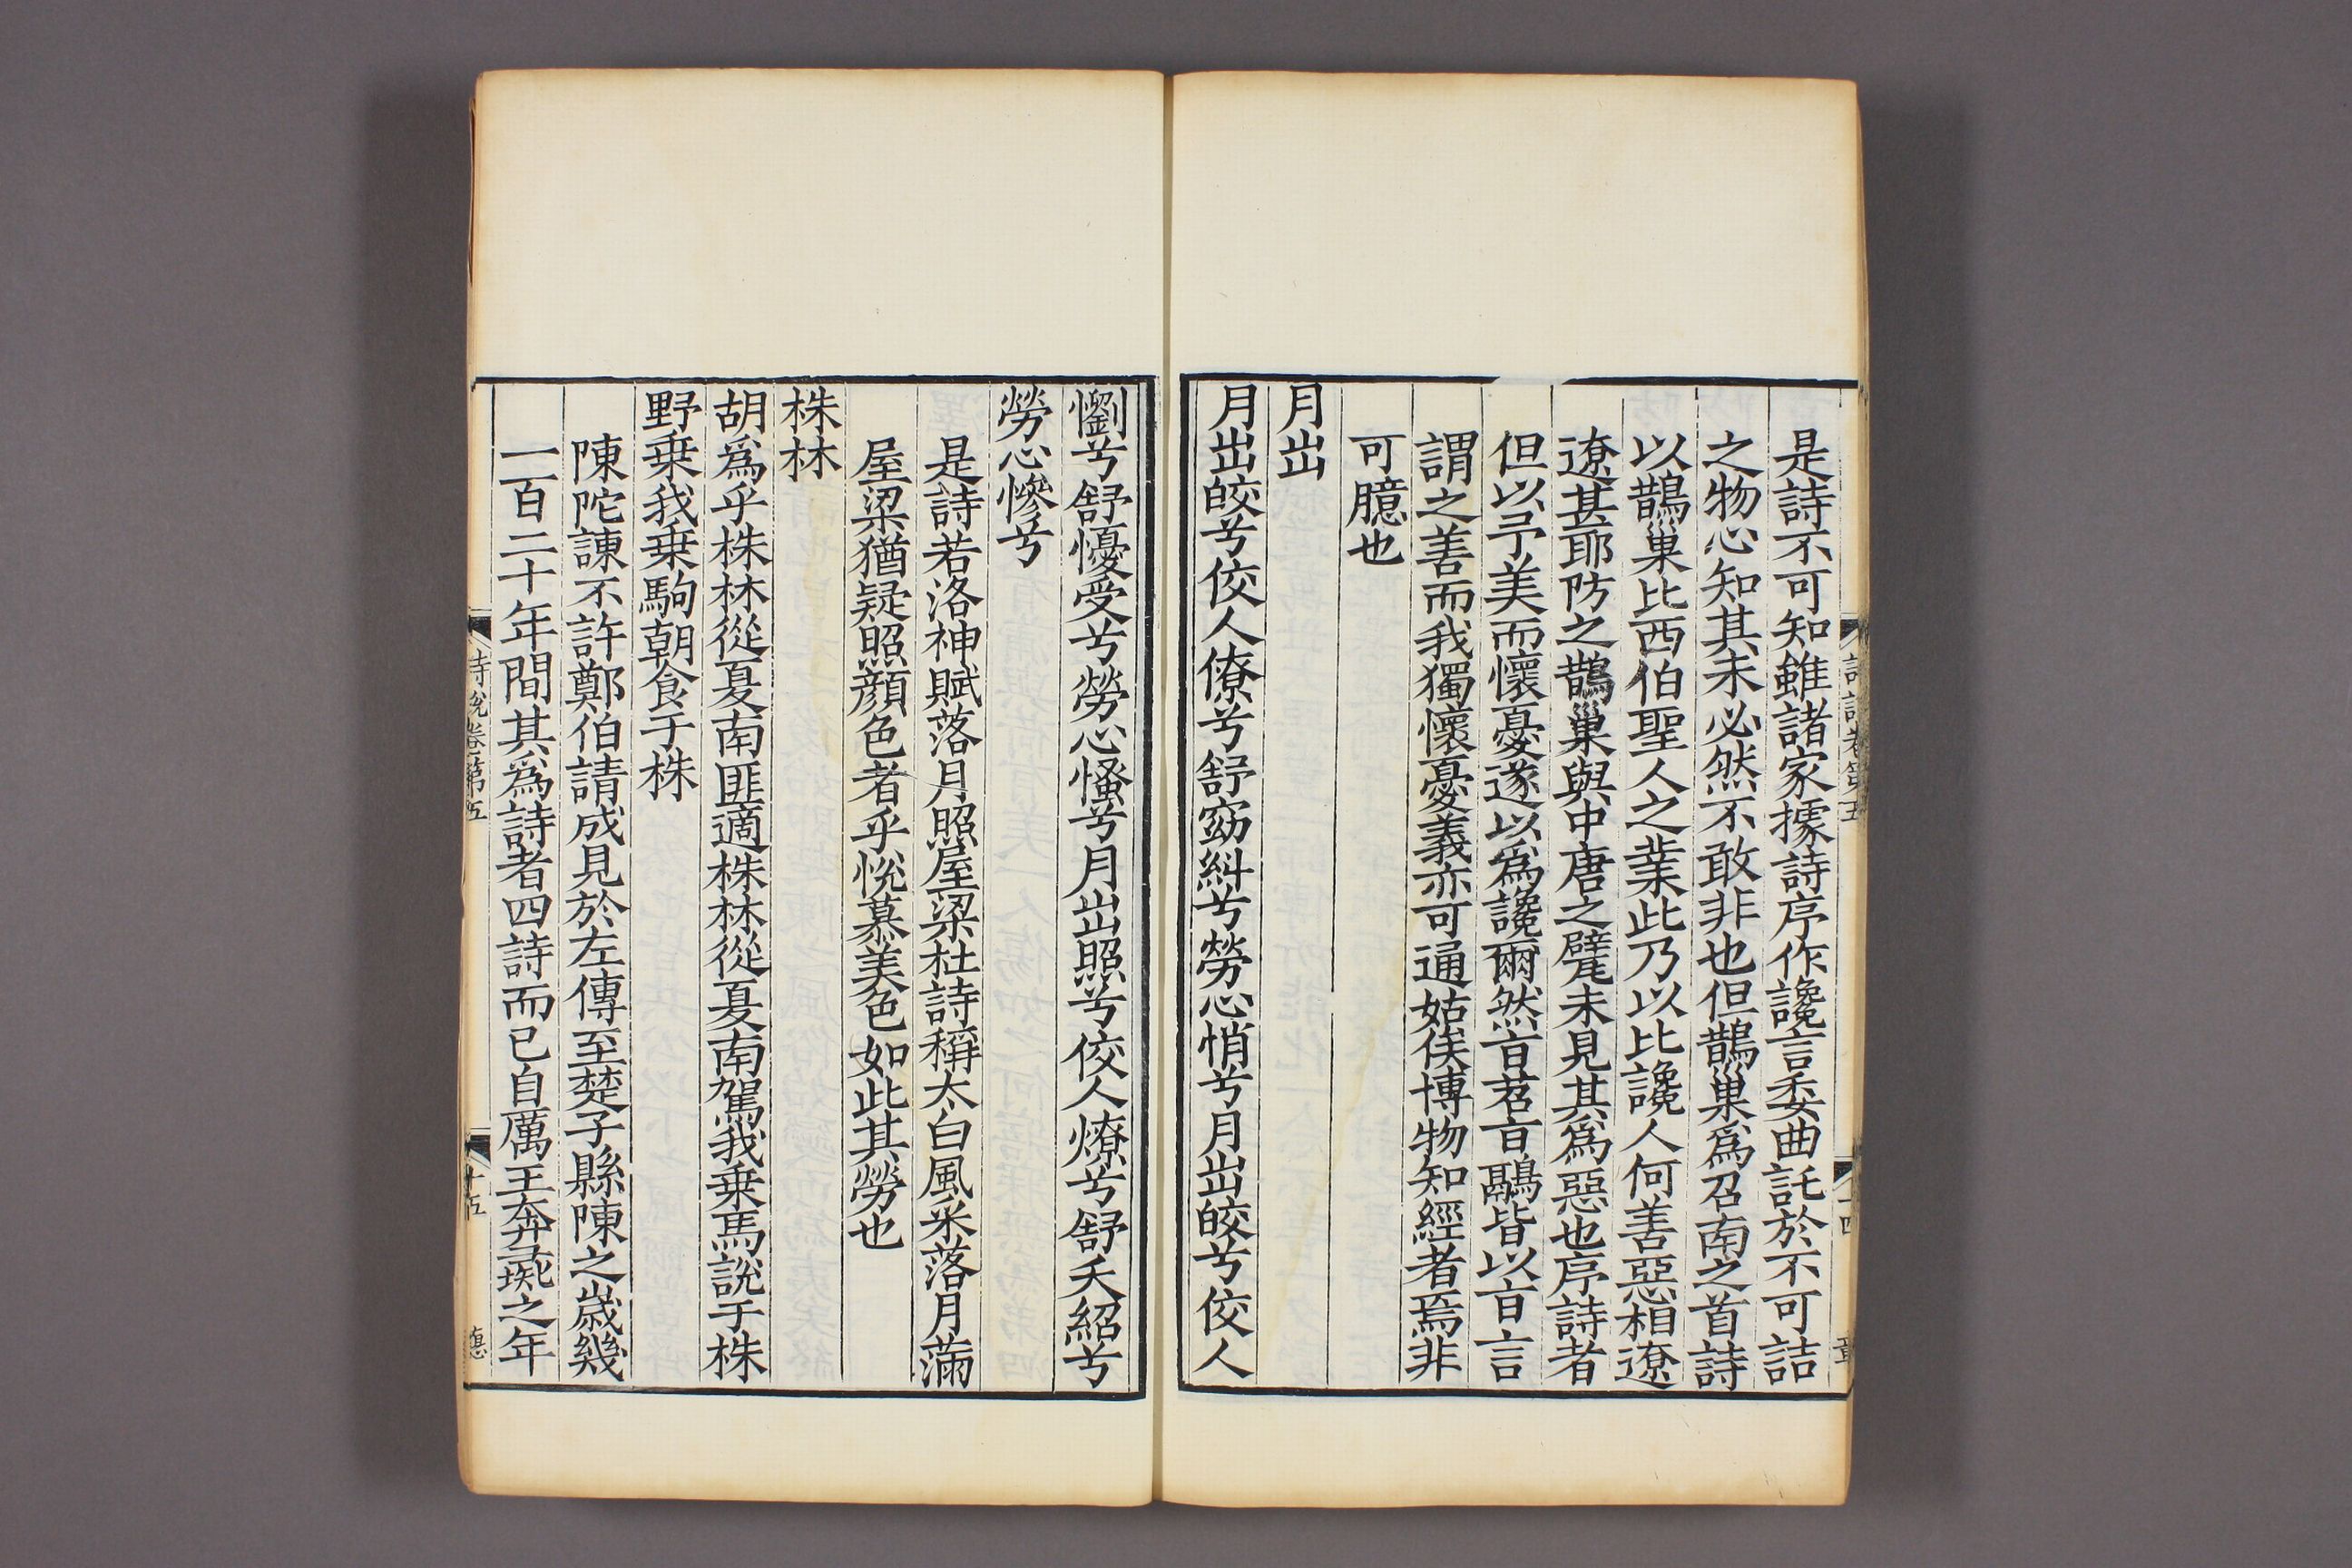 詩説卷第五
十四
章
是詩不可知雖諸家據詩序作讒言委曲託於不可詰
之物心知其未必然不敢非也但鵲巢爲召南之首詩
以鵲巢比西伯聖人之業此乃以比讒人何善惡相遼
遼甚耶防之鵲巢與中唐之甓未見其爲惡也序詩者
但以予美而懷憂遂以爲讒爾然旨苕旨鷊皆以旨言
謂之善而我獨懷憂義亦可通姑俟博物知經者焉非
可臆也
月出
月出皎兮佼人僚兮舒窈糾兮勞心悄兮月出皎兮佼人
懰兮舒懮受兮勞心慅兮月出照兮佼人燎兮舒夭紹兮
勞心慘兮
是詩若洛神賦落月照屋梁杜詩稱太白風采落月滿
屋梁猶疑照顔色者乎恱慕美色如此其勞也
株林
胡爲乎株林從夏南匪適株林從夏南駕我乗馬説于株
野乗我乗駒朝食于株
陳陀諫不許鄭伯請成見於左傳至楚子縣陳之歳幾
一百二十年間其爲詩者四詩而已自厲王奔彘之年
詩説卷第五
十五
應